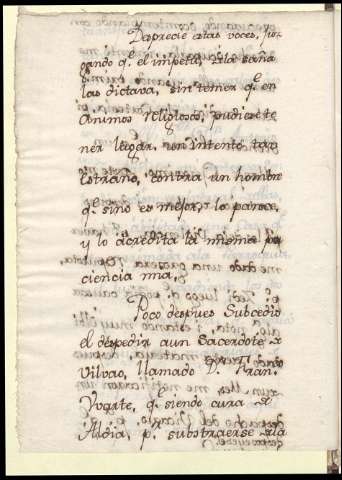 Desprecie estas voces, juz-
gando q.e el impetu, ò la saña
las dictava, sin temer q.e en
animos religiosos, pudiese te
ner lugar, un intento tan
estraño, contra un hombre
q.e sino es mejor, lo parece,
y lo acredita la misma pa
ciencia mia.
Poco despues Subcedio
el despedir a un Sacerdote
Vilvao, llamado D.n Fran.co
Yvarte, q.e siendo cura
Aldia, p.r substraerse